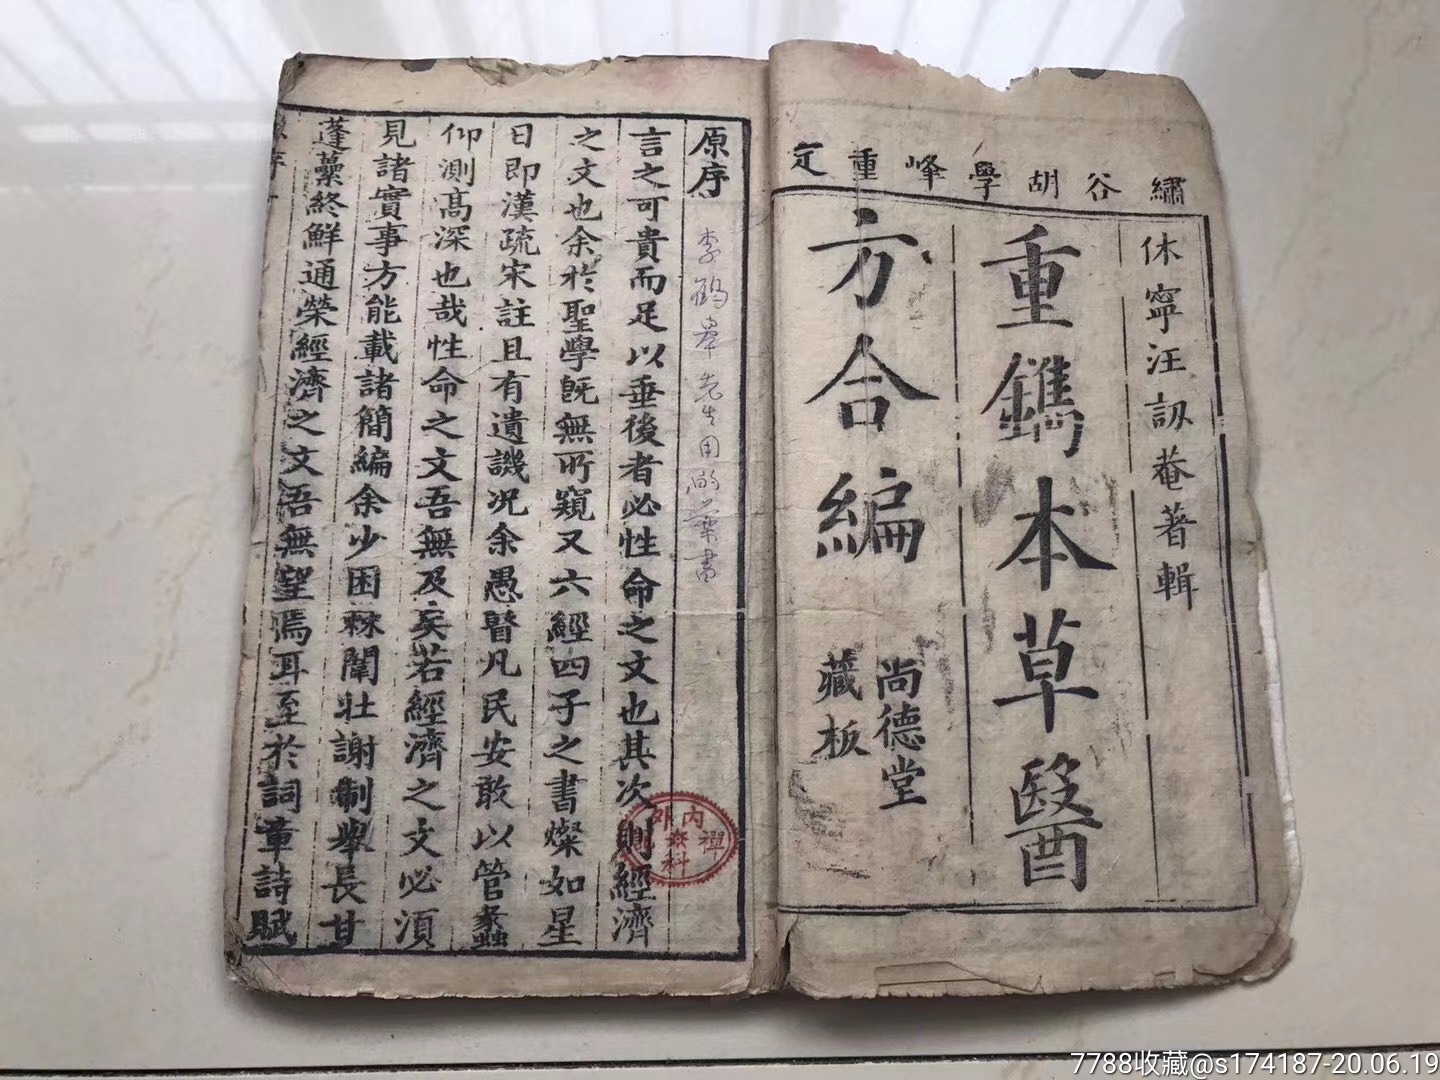 繡谷胡學峰重定
休寧汪訒菴著輯
重鐫本草醫
方合編
尚德堂
藏板
原序
李鶴皋先生用的藥書
言之可貴而足以垂後者必性命之文也其次則經濟
之文也余於聖學既無所窺又六經四子之書燦如星
日即漢疏宋註且有遺譏况余愚瞽凡民安敢以管蠡
仰測高深也哉性命之文吾無及矣若經濟之文必須
見諸實事方能載諸簡編余少困棘闈壯謝制舉長甘
蓬藁終鮮通榮經濟之文吾無望焉耳至於詞章詩賦
內外
禪
科
7788收藏@s174187-20.06.19